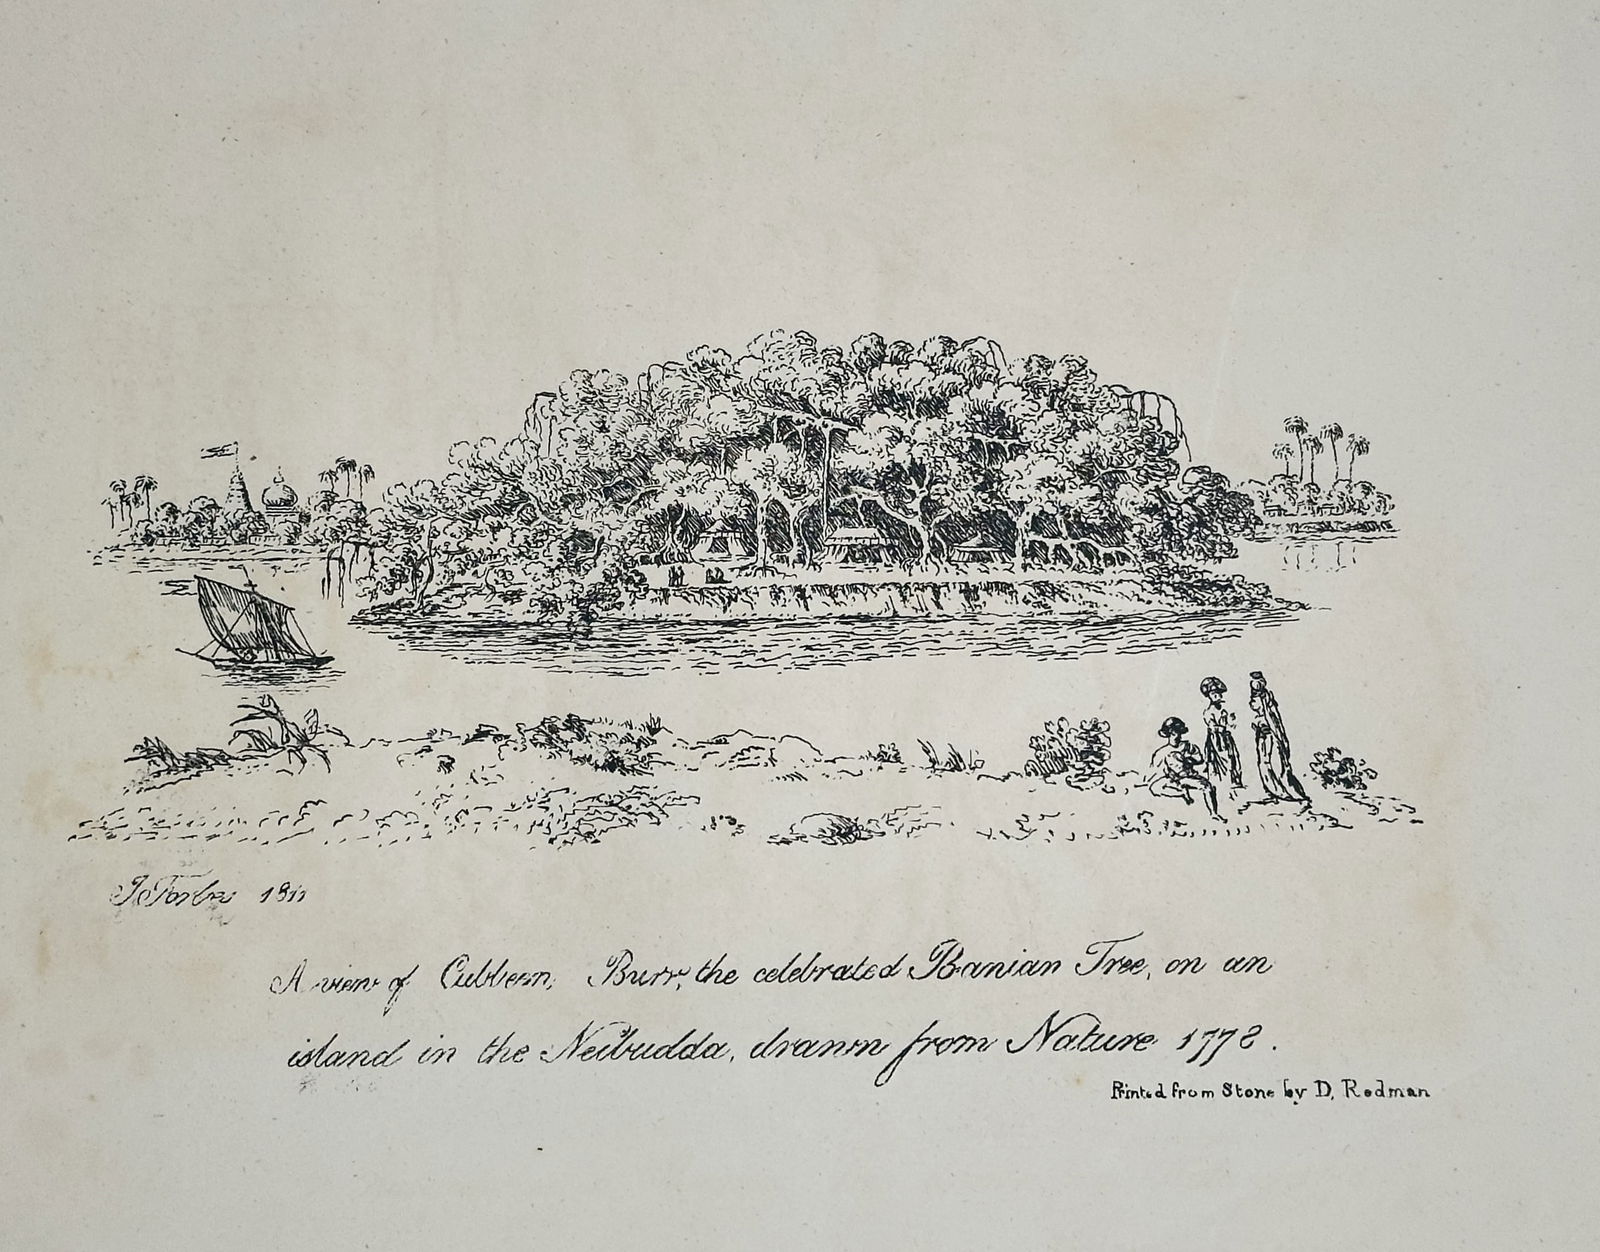 J. Forbes 1811
A view of Cubbeer, Burr, the celebrated Banian Tree, on an
island in the Nerbudda, drawn from Nature 1778.
Printed from Stone by D, Redman